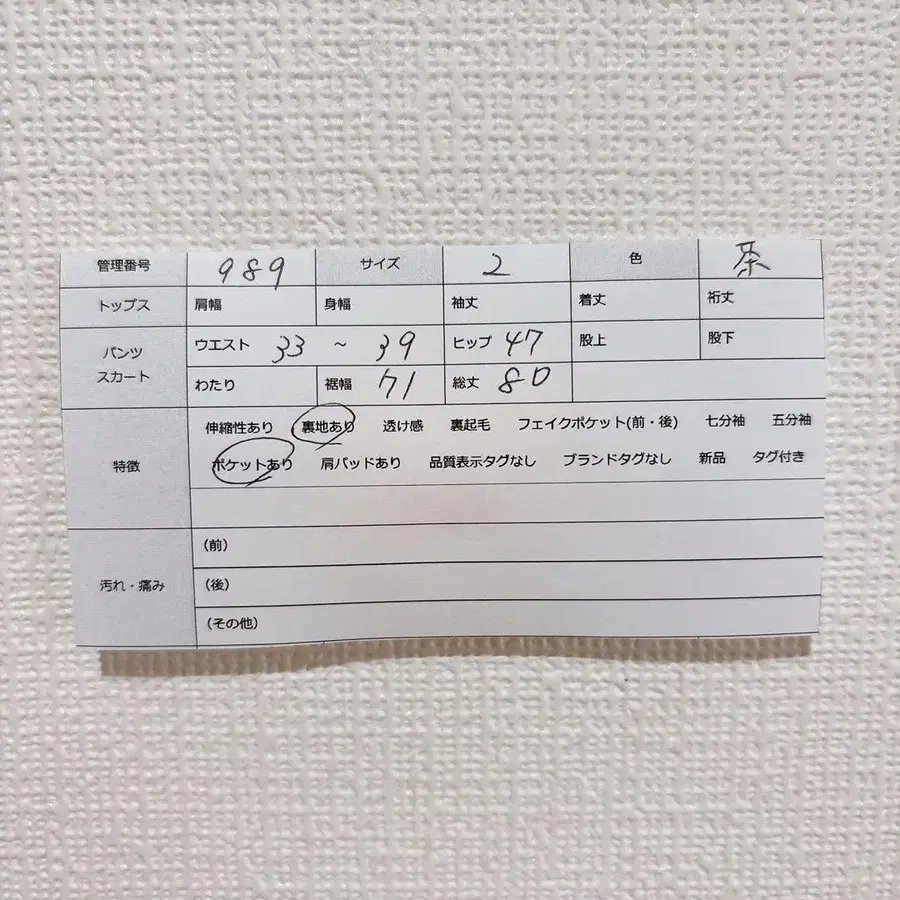 管理番号 989 サイズ 2 色 茶
トップス 肩幅 身幅 袖丈 着丈 裄丈
パンツ スカート ウエスト 33 ~ 39 ヒップ 47 股上 股下
わたり 裾幅 71 総丈 80
特徴 伸縮性あり 裏地あり 透け感 裏起毛 フェイクポケット(前・後) 七分袖 五分袖
ポケットあり 肩パッドあり 品質表示タグなし ブランドタグなし 新品 タグ付き
汚れ・痛み (前)
(後)
(その他)